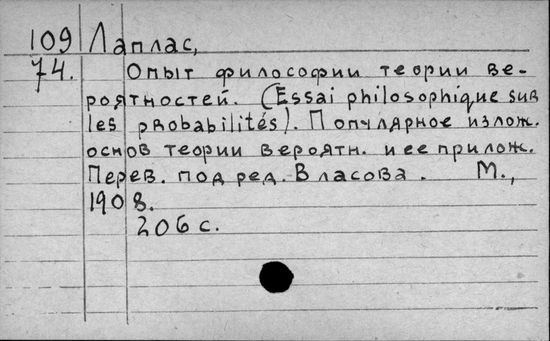 109 Лаплас,
74. Опыт философии теории ве-
роятностей. (Essai philosophique sur
les probabilités). Популярное излож.
основ теории вероятн. и ее прилож.
Перев. под ред. Власова. М.,
1908.
206 с.